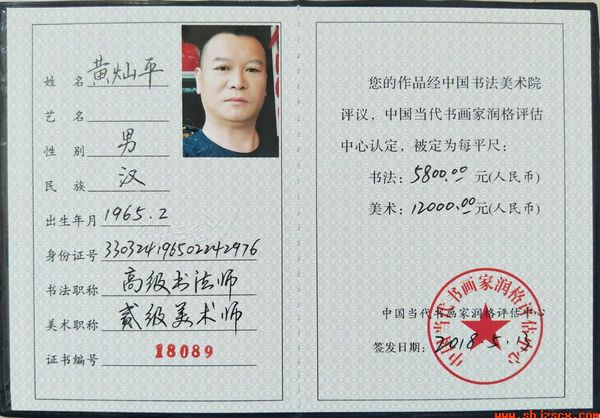 姓 名 黄灿平
艺 名
性 别 男
民 族 汉
出生年月 1965.2
身份证号 330324196502242976
书法职称 高级书法师
美术职称 贰级美术师
证书编号 18089
您的作品经中国书法美术院
评议，中国当代书画家润格评估
中心认定，被定为每平尺：
书法：5800.00 元(人民币)
美术：12000.00 元(人民币)
中国当代书画家润格评估中心
签发日期：2018.5.13
中国当代书画家润格评估中心
www.shjzscx.com